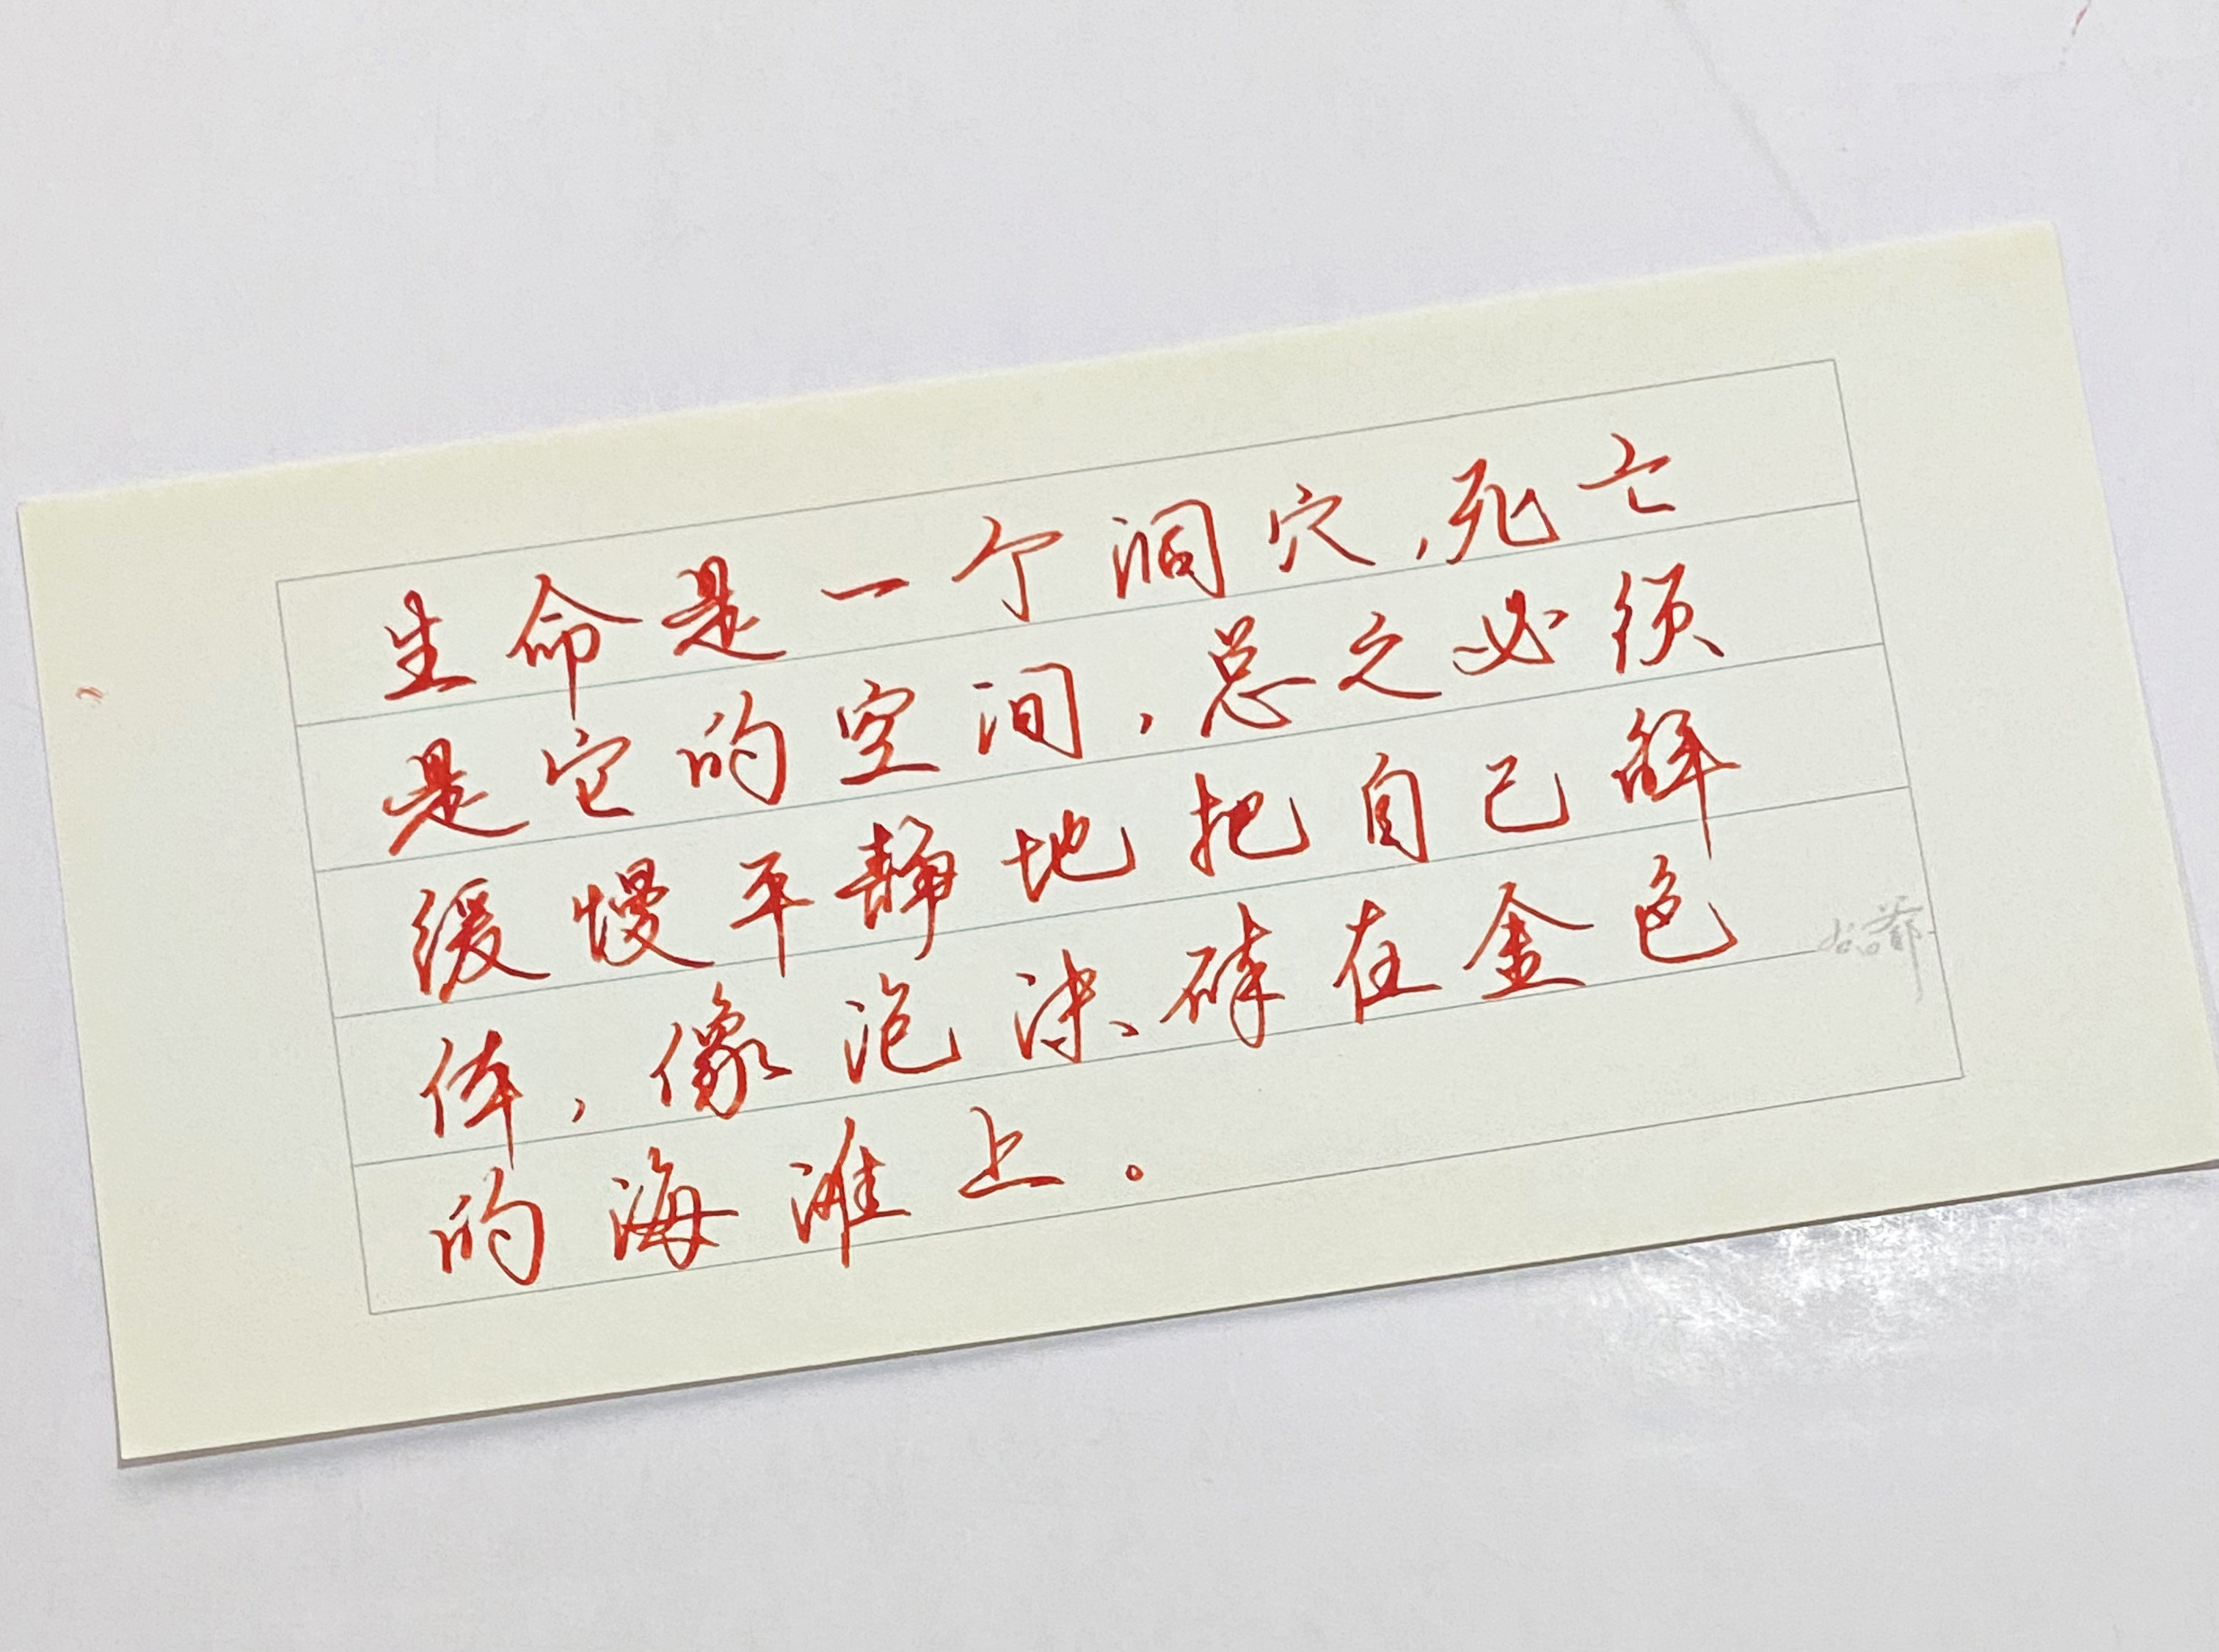 生命是一个洞穴,死亡
是它的空间,总之必须
缓慢平静地把自己解
体,像泡沫碎在金色
的海滩上。